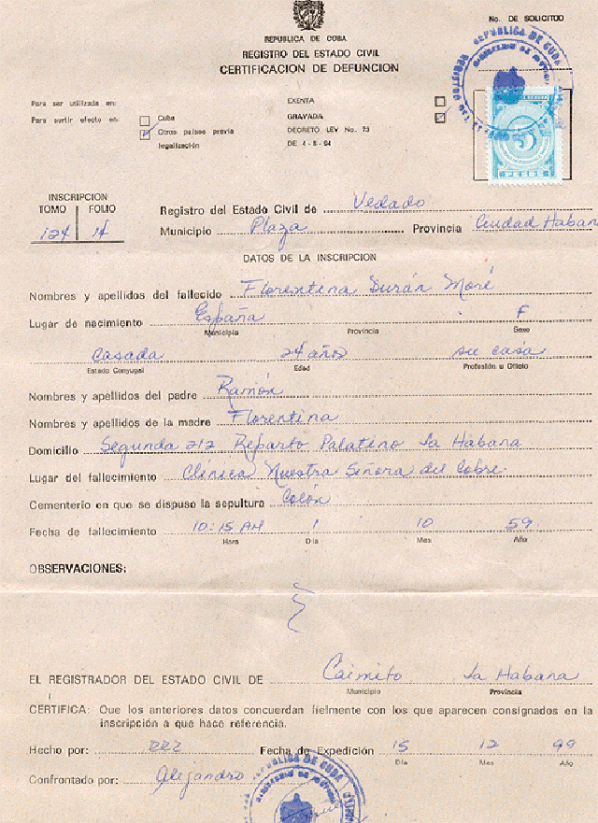 No. DE SOLICITUD
REPUBLICA DE CUBA
REGISTRO DEL ESTADO CIVIL
CERTIFICACION DE DEFUNCION
Para ser utilizada en: EXENTA
Para surtir efecto en: Cuba GRAVADA
Otros países previa legalización DECRETO LEY No. 73
DE 4-8-94
REPUBLICA DE CUBA
5
PESOS
INSCRIPCION
TOMO FOLIO
124 14
Registro del Estado Civil de Vedado
Municipio Plaza Provincia Ciudad Habana
DATOS DE LA INSCRIPCION
Nombres y apellidos del fallecido Florentina Durán Moré
Lugar de nacimiento España F
Municipio Provincia Sexo
Casada 24 años su casa
Estado Conyugal Edad Profesión u Oficio
Nombres y apellidos del padre Ramón
Nombres y apellidos de la madre Florentina
Domicilio Segunda 212 Reparto Palatino La Habana
Lugar del fallecimiento Clinica Nuestra Señora del Cobre
Cementerio en que se dispuso la sepultura Colón
Fecha de fallecimiento 10:15 AM 1 10 59
Hora Día Mes Año
OBSERVACIONES:
EL REGISTRADOR DEL ESTADO CIVIL DE Caimito La Habana
Municipio Provincia
CERTIFICA: Que los anteriores datos concuerdan fielmente con los que aparecen consignados en la
inscripción a que hace referencia.
Hecho por: Fecha de Expedición 15 12 99
Día Mes Año
Confrontado por: Alejandro
REPUBLICA DE CUBA
MINISTERIO DE